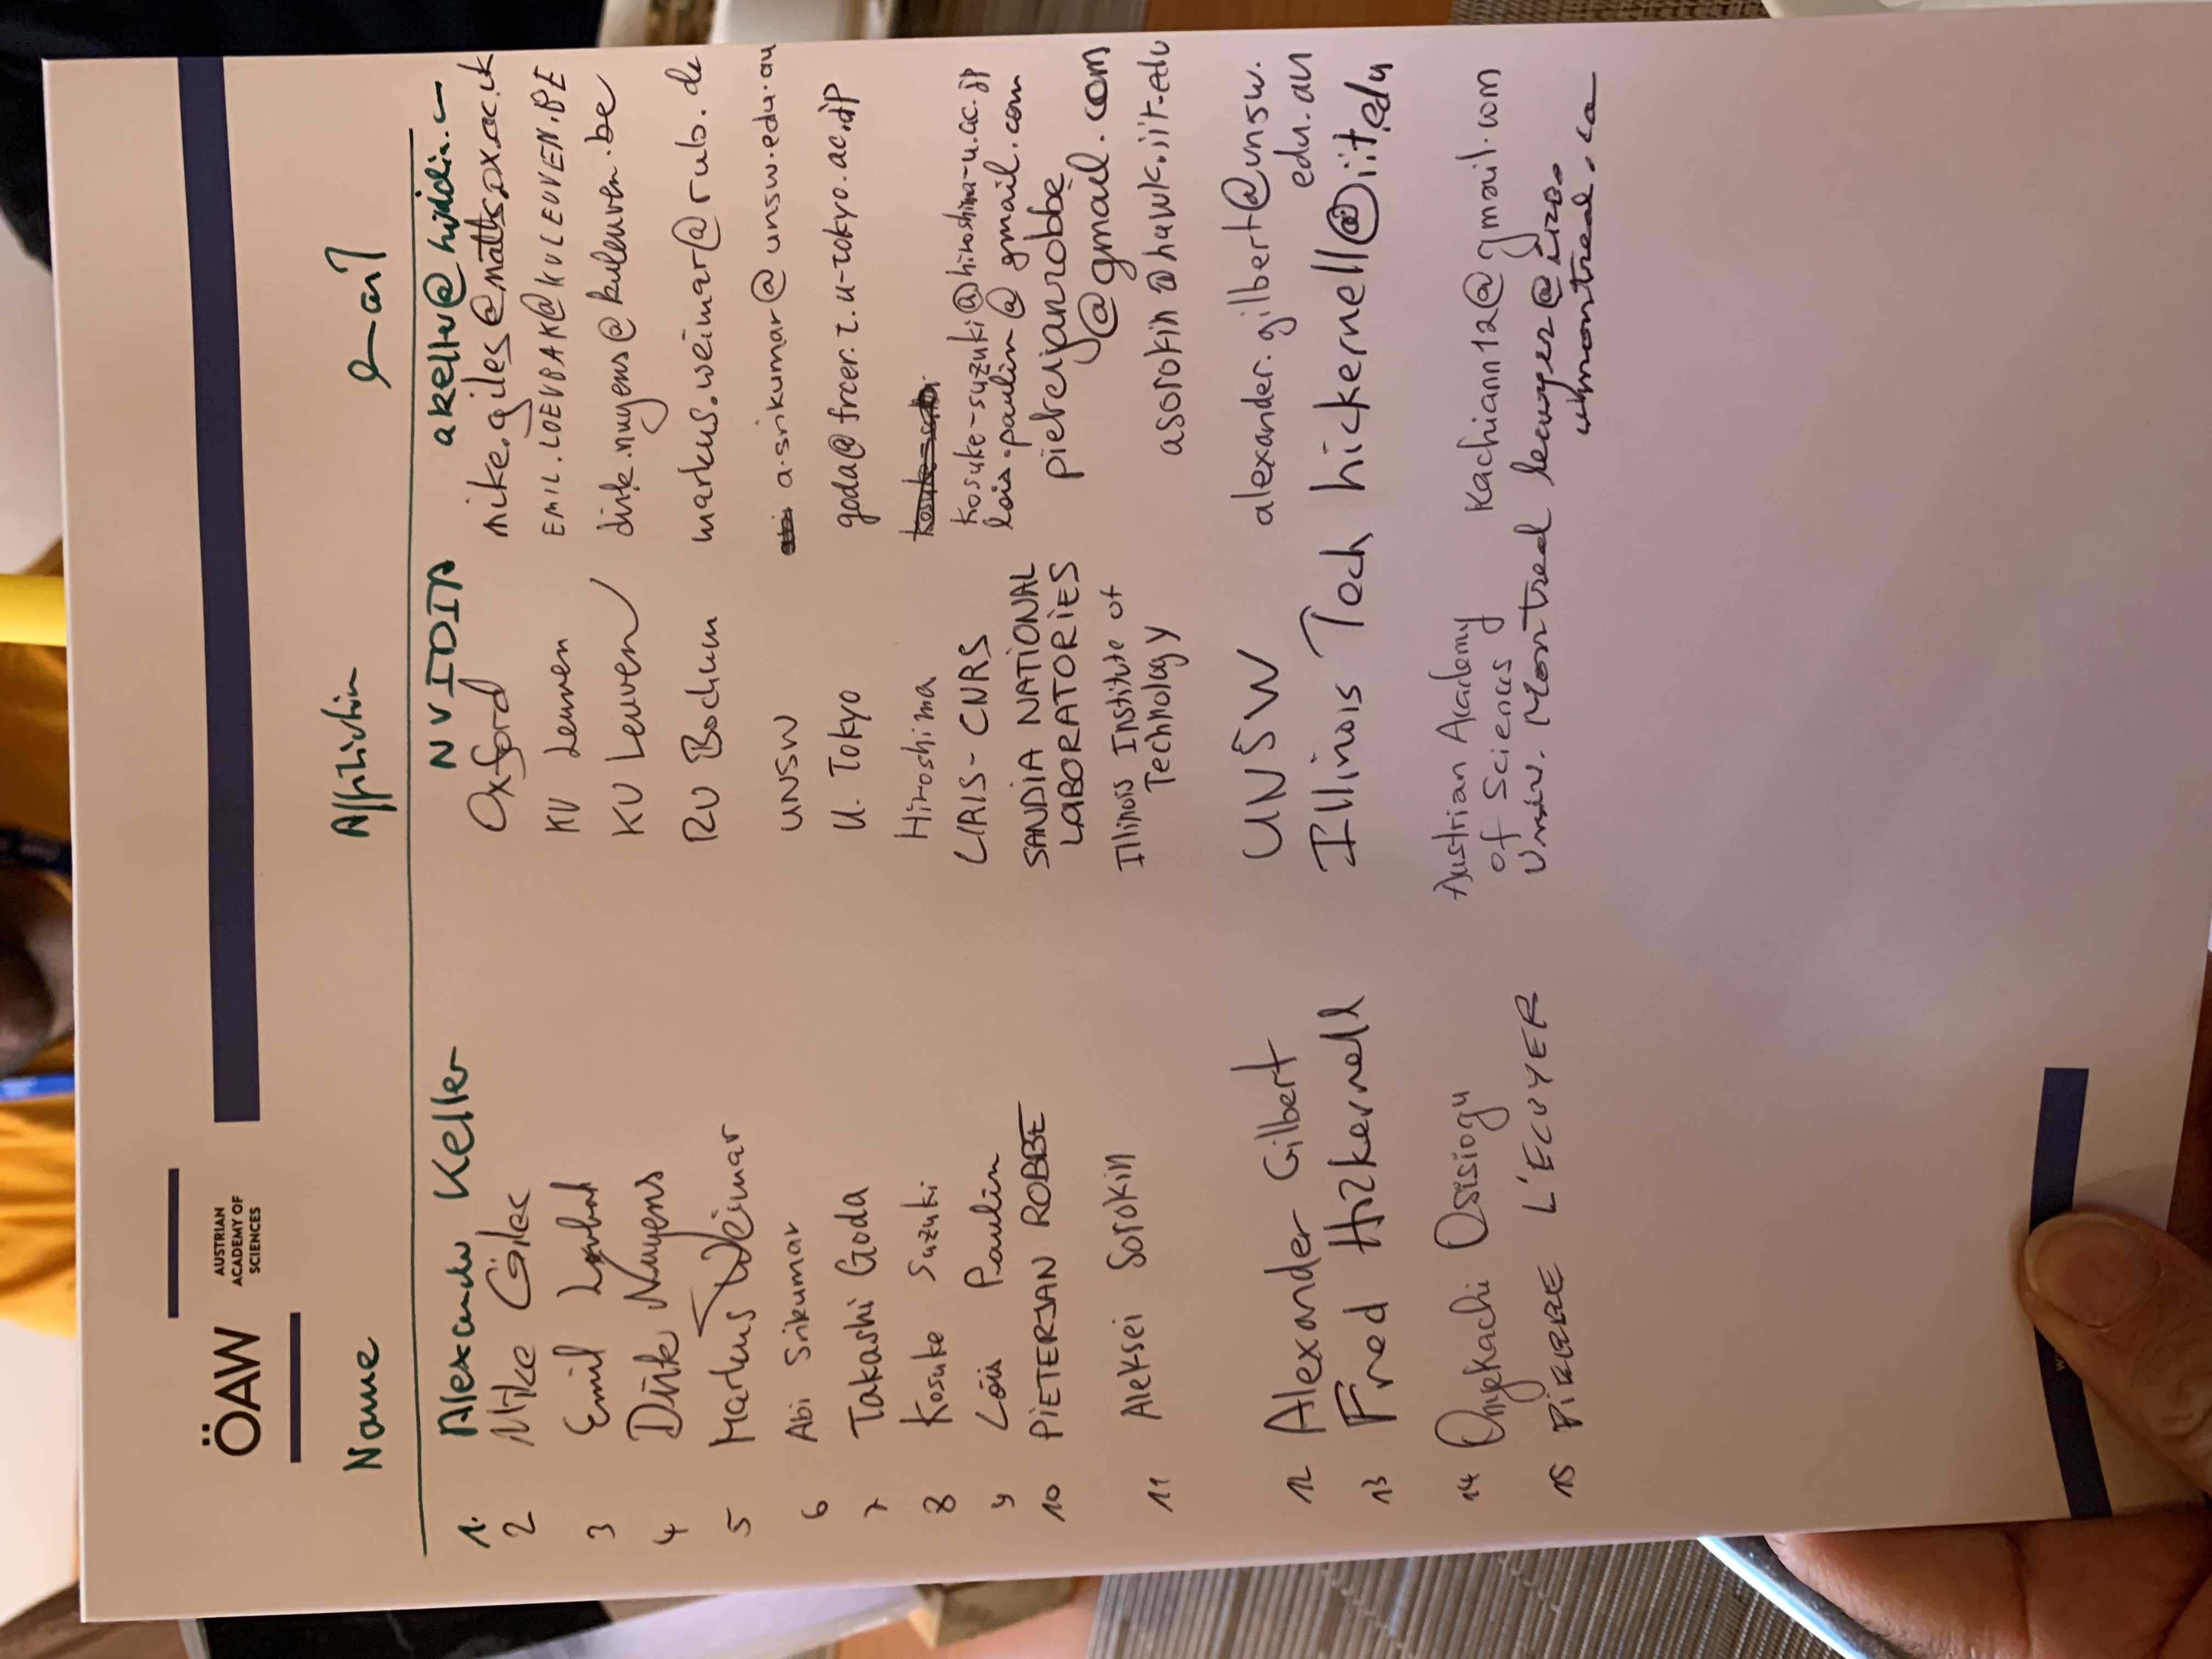 ÖAW
AUSTRIAN
ACADEMY OF
SCIENCES
Name Affiliation email
1. Alexander Keller NVIDIA akeller@nvidia.
2 Mike Giles Oxford mike.giles@maths.ox.ac.uk
3 Emil Loevbak KU Leuven EMIL.LOEVBAK@KULEUVEN.BE
4 Dirk Nuyens KU Leuven dirk.nuyens@kuleuven.be
5 Markus Weimar RU Bochum markus.weimar@rub.de
6 Abi Srikumar UNSW a.srikumar@unsw.edu.au
7 Takashi Goda U. Tokyo goda@frcer.t.u-tokyo.ac.jp
8 Kosuke Suzuki Hiroshima
kosuke-suzuki@hiroshima-u.ac.jp
9 Loïs Paulin LIRIS-CNRS lois.paulin@gmail.com
10 PIETERJAN ROBBE SANDIA NATIONAL pieterjanrobbe
LABORATORIES @gmail.com
11 Aleksei Sorokin Illinois Institute of
Technology asorokin@hawk.iit.edu
12 Alexander Gilbert UNSW alexander.gilbert@unsw.
edu.au
13 Fred Hickernell Illinois Tech hickernell@iit.edu
14 Onyekachi Osisiogu Austrian Academy
of Sciences kachiann12@gmail.com
15 PIERRE L'ECUYER Univ. Montreal lecuyer@iro.
umontreal.ca